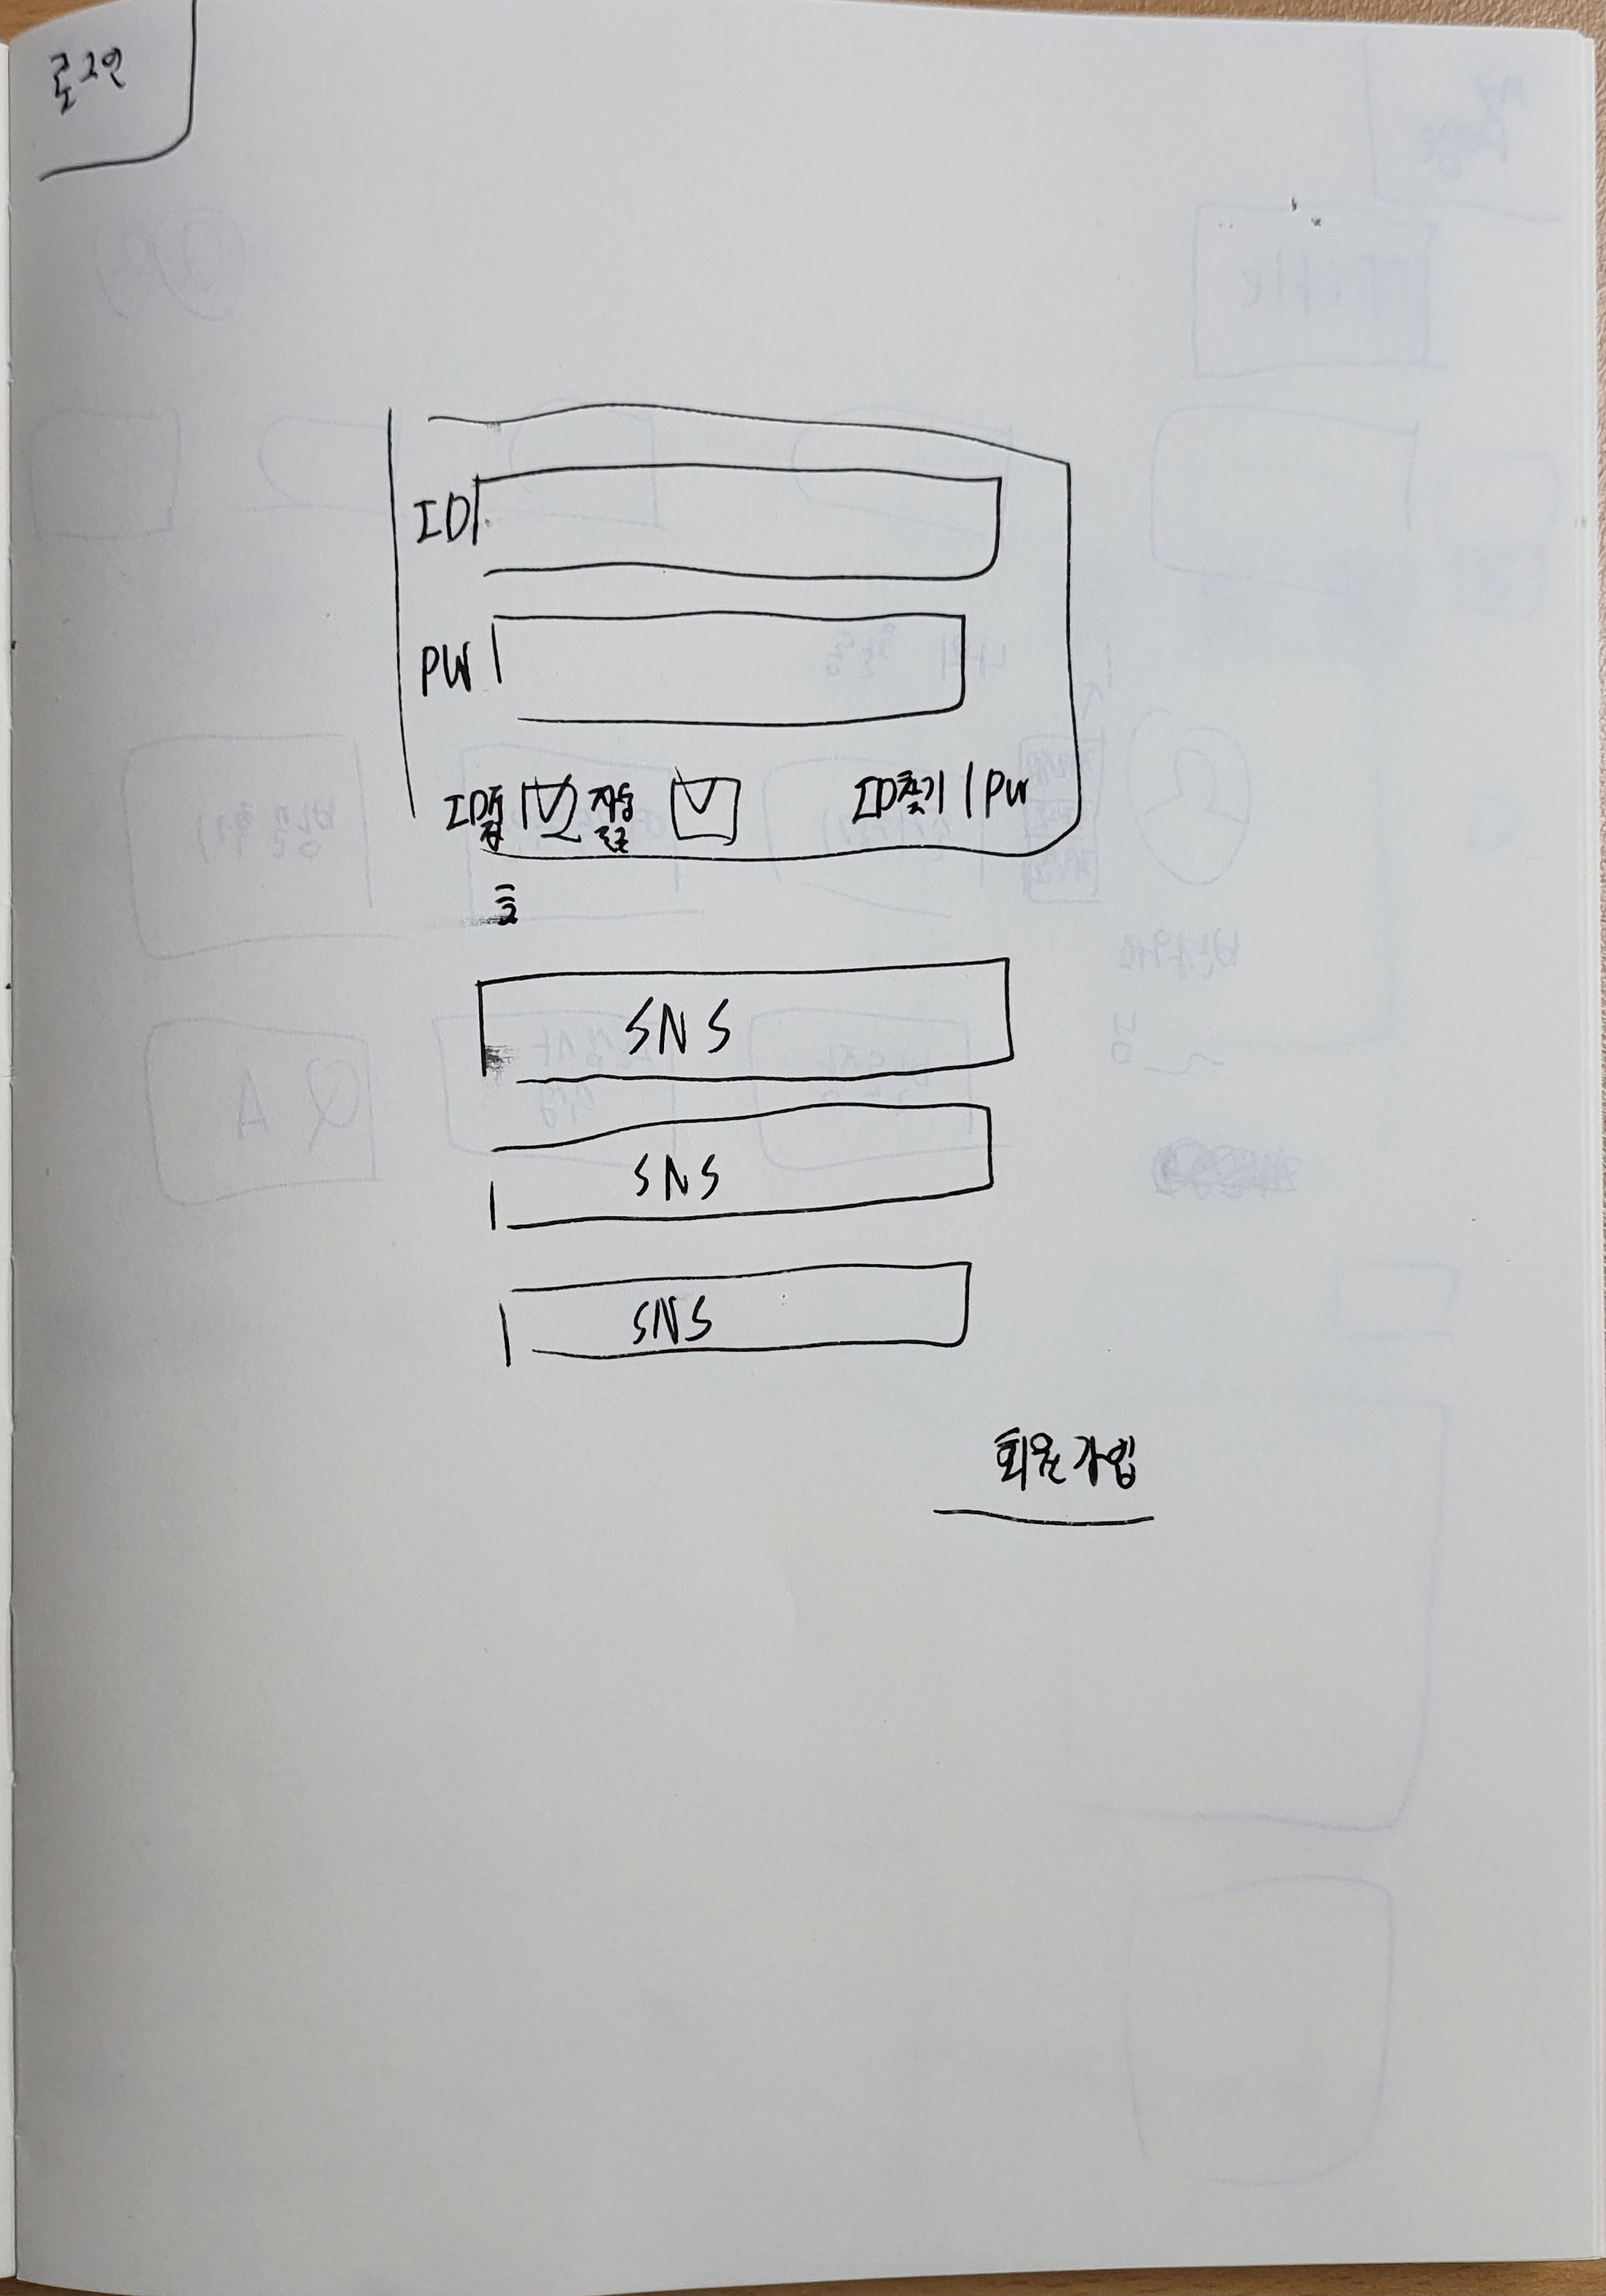 로그인
ID
PW
ID 자동 ID찾기 | PW
SNS
SNS
SNS
회원가입